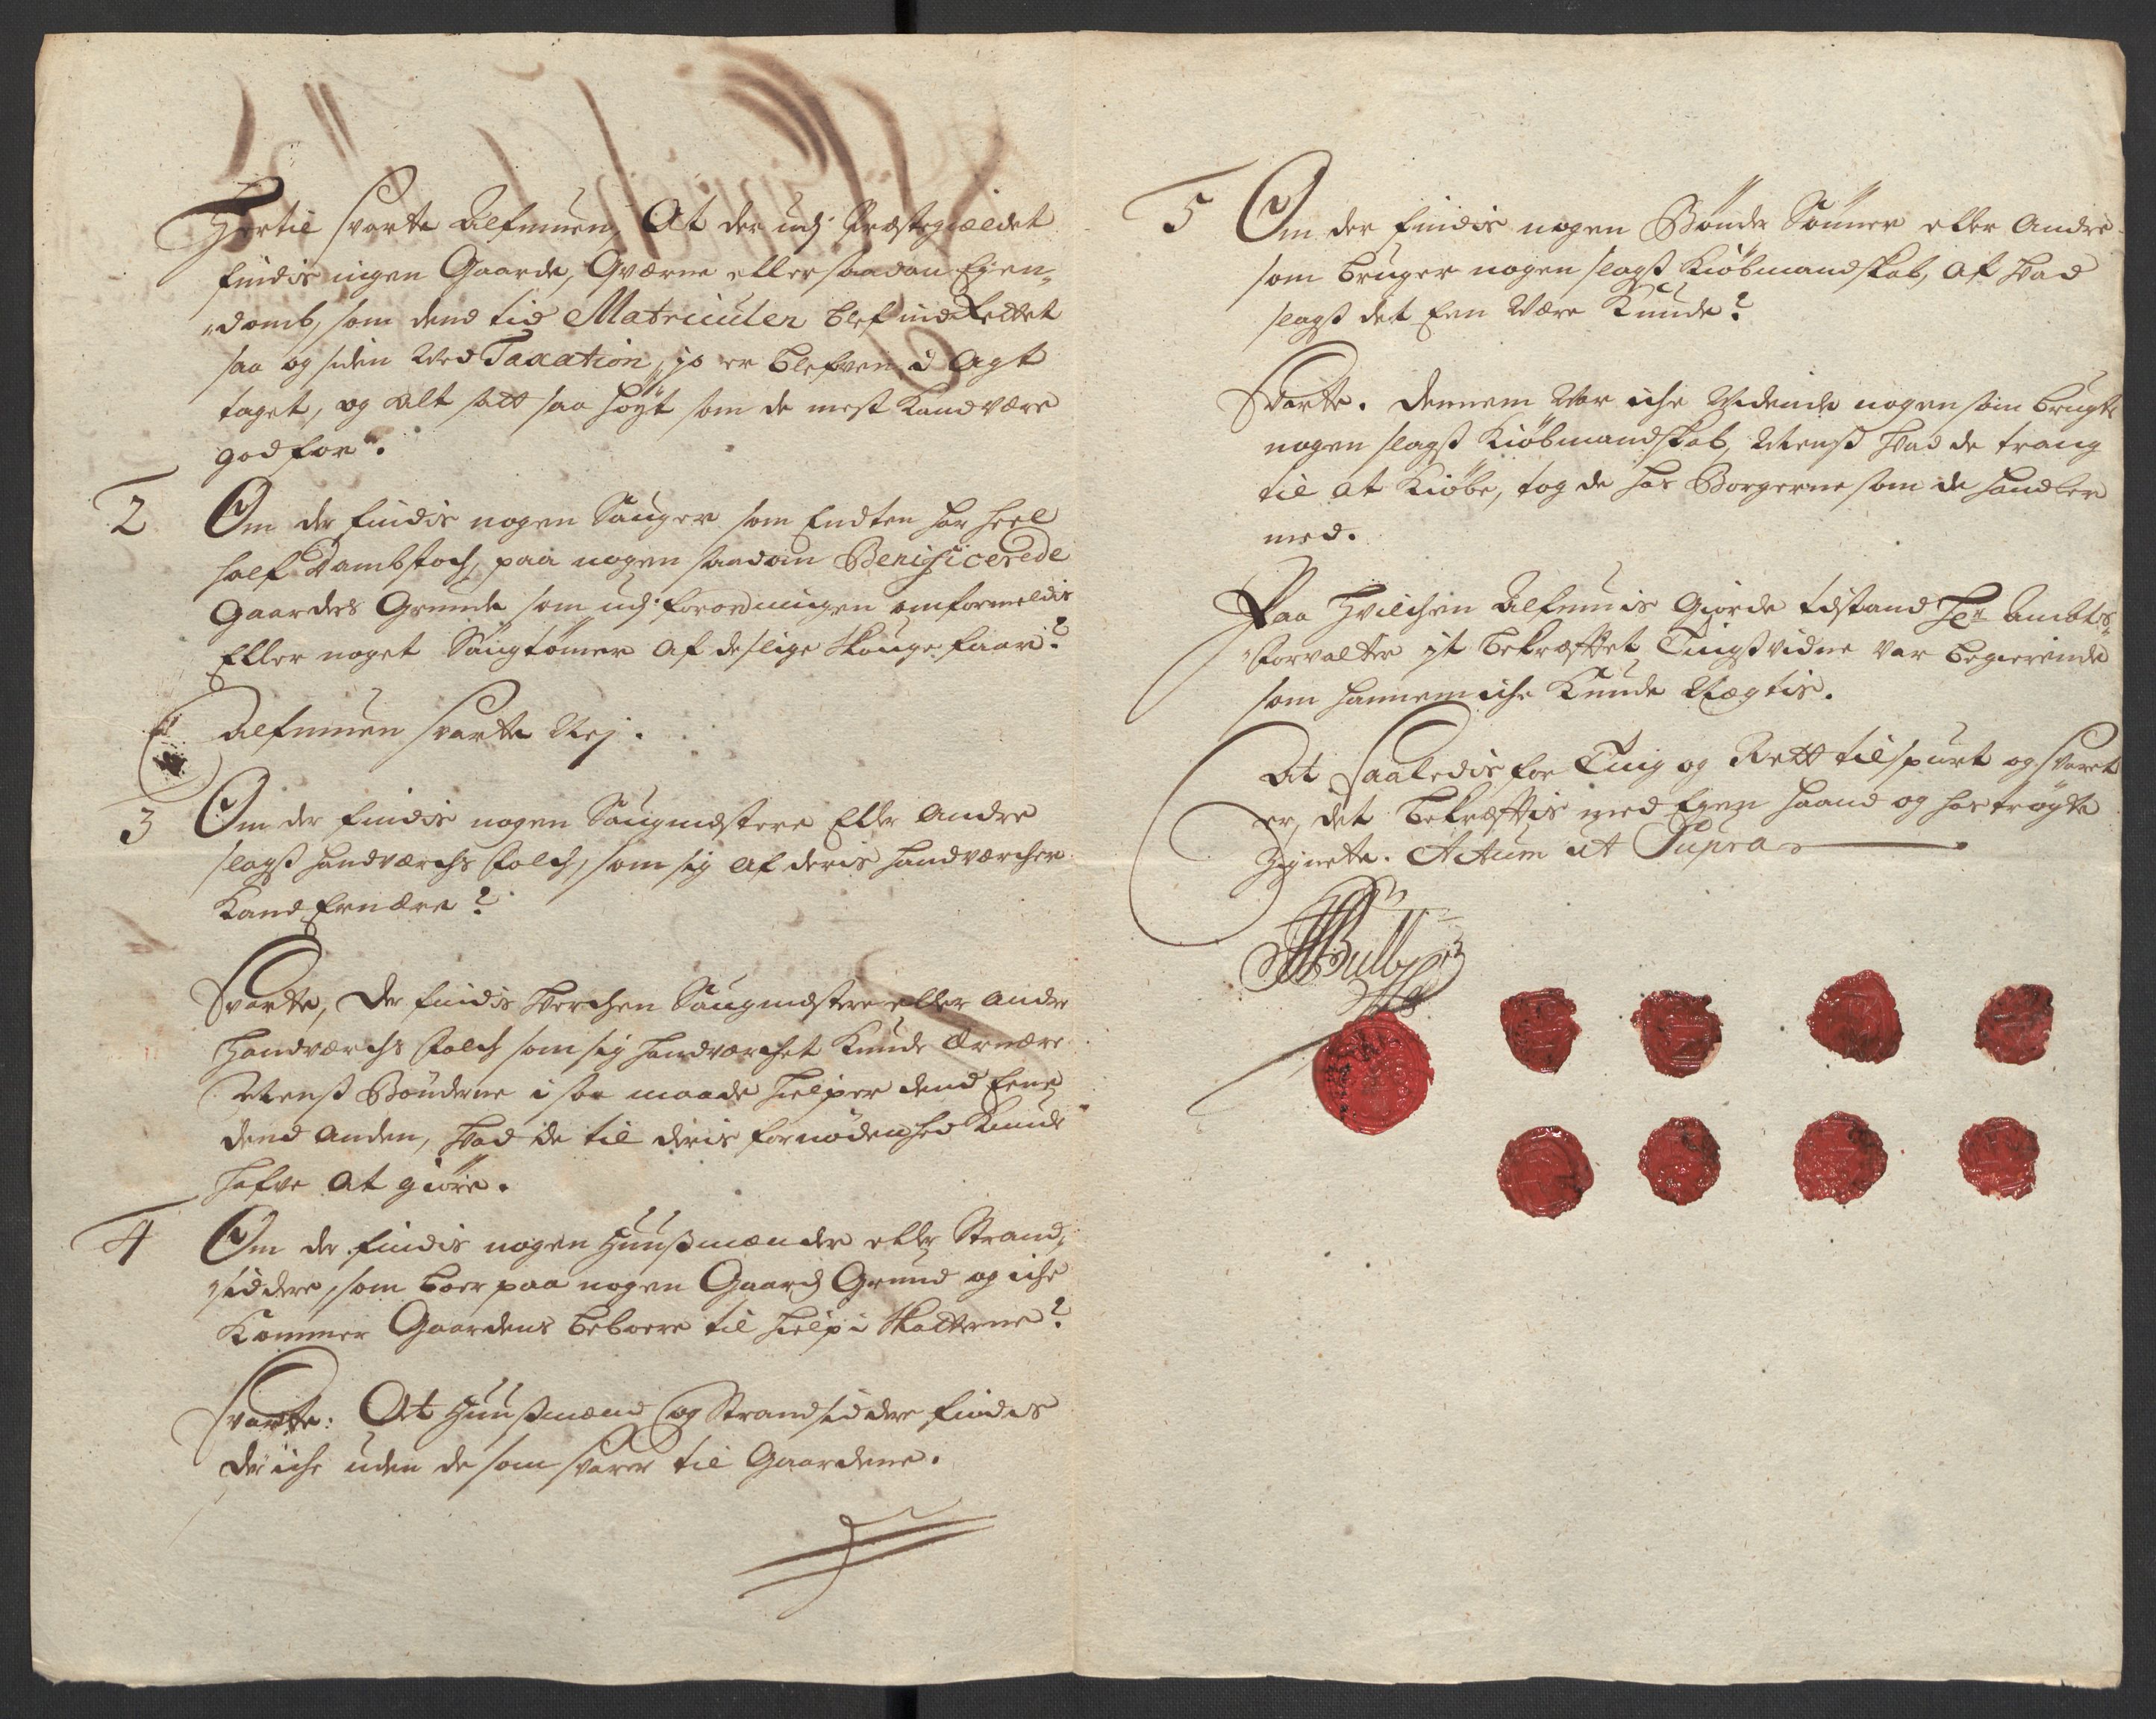 Hertil svarte Alfmuen, At der udj Præstegieldet
findis ingen Gaarde, Qværne eller saadan Ejen-
domb, som dend tid Matriculen blef indrettet
saa og siden ved Taxation, jo er blefven i Agt
taget, og Alt satt saa høyt som de mest kand være
god for.
2 Om der findis nogen Sauger som Endten har heel
half Dambstoch, paa nogen saadan Benificerede
Gaarders Grunde som udj forordningen omformeldis
Eller noget Saugtømer af deslige Skouge faar?
Alfmuen svarte Nej.
3 Om der findis nogen Saugmestere Eller Andre
slags Handværchs Folch, som sig af deris Handværcher
kand Ernære?
Svarte, Der findis hverchen Saugmestere eller Andre
Handværchs Folch som sig Handværchet kunde Ernære
Menß Bønderne i saa maade hielper dend Eene
dend Anden, hvad de til deris fornødenhed kunde
hafve At giøre.
4 Om der findis nogen Huußmænder eller Strand-
siddere, som boer paa nogen Gaards Grund og iche
kommer Gaardens beboere til hielp i Skatterne?
Svarte: At Huußmænd og Strandsiddere findes
der iche uden de som svarer til Gaardene.
5 Om der findis nogen Bønder Sønner eller Andre
som bruger nogen slagß Kiøbmandskab, Af hvad
slagß det Een være kunde?
Svarte. Dennem var iche vidende nogen som brugte
nogen slagß Kiøbmandskab, Menß hvad de trang
til At Kiøbe, tog de hos Borgerne som de handler
med.
Paa hvilchen Alfmuis Giorde tilstand Hr Ambts-
Forvalter it bekræfftet Tingßvidne var begierende
som hannem iche kunde Nægtis.
At saaledis for Ting og Rett tilspurt og svaret
er, det bekræfftis med Egen haand og hostrøgte
Zignete. Actum ut Supra